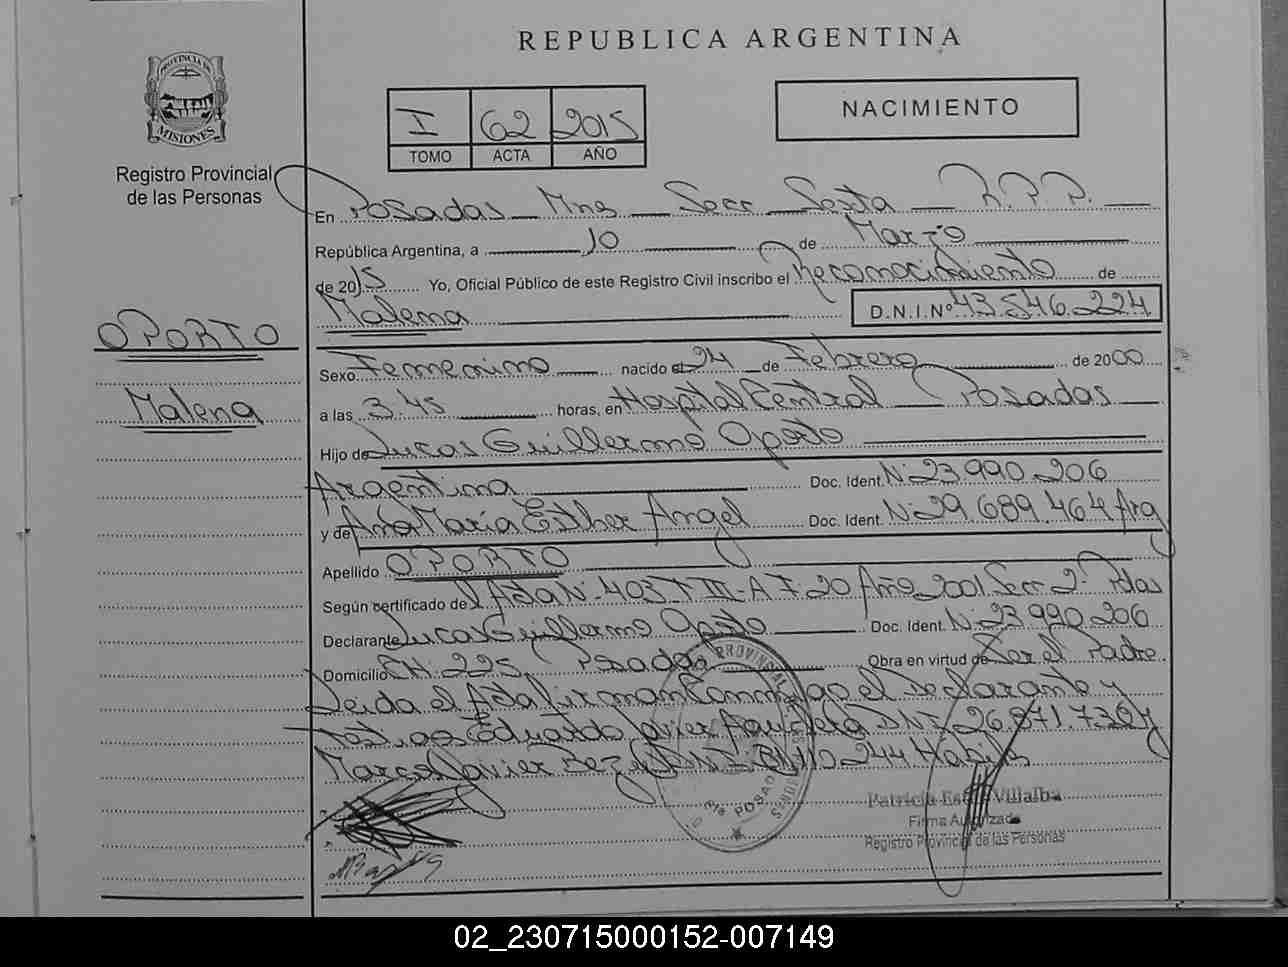 REPUBLICA ARGENTINA
PROVINCIA DE
MISIONES
Registro Provincial
de las Personas
I 62 2015
TOMO ACTA AÑO
NACIMIENTO
En Posadas Mns Secc Sexta R.P.P.
República Argentina, a 10 de Marzo
de 2015 Yo, Oficial Público de este Registro Civil inscribo el Reconocimiento de
Malena D.N.I.Nº 43.546.224
OPORTO
Malena
Sexo Femenino nacido el 24 de Febrero de 2000
a las 3.45 horas, en Hospital Central Posadas
Hijo de Lucas Guillermo Oporto
Argentina Doc. Ident. Nº 23.990.206
y de Ana María Esther Angel Doc. Ident. Nº 29.689.464 Arg
Apellido OPORTO
Según certificado del Acta Nº 403 T III-A F-20 Año 2001 Secc 2ª Pdas
Declarante Lucas Guillermo Oporto Doc. Ident. Nº 23.990.206
Domicilio CH: 225 Posadas Obra en virtud de Ser el Padre
Leida el Acta firman Conmigo el Declarante y
testigos Eduardo Javier DNI 26.871.730 y
Marcos Javier DNI 244 Habiles
PROVINCIAL
POSADAS
Patricia Villalba
Firma Autorizada
Registro Provincial de las Personas
02_230715000152-007149